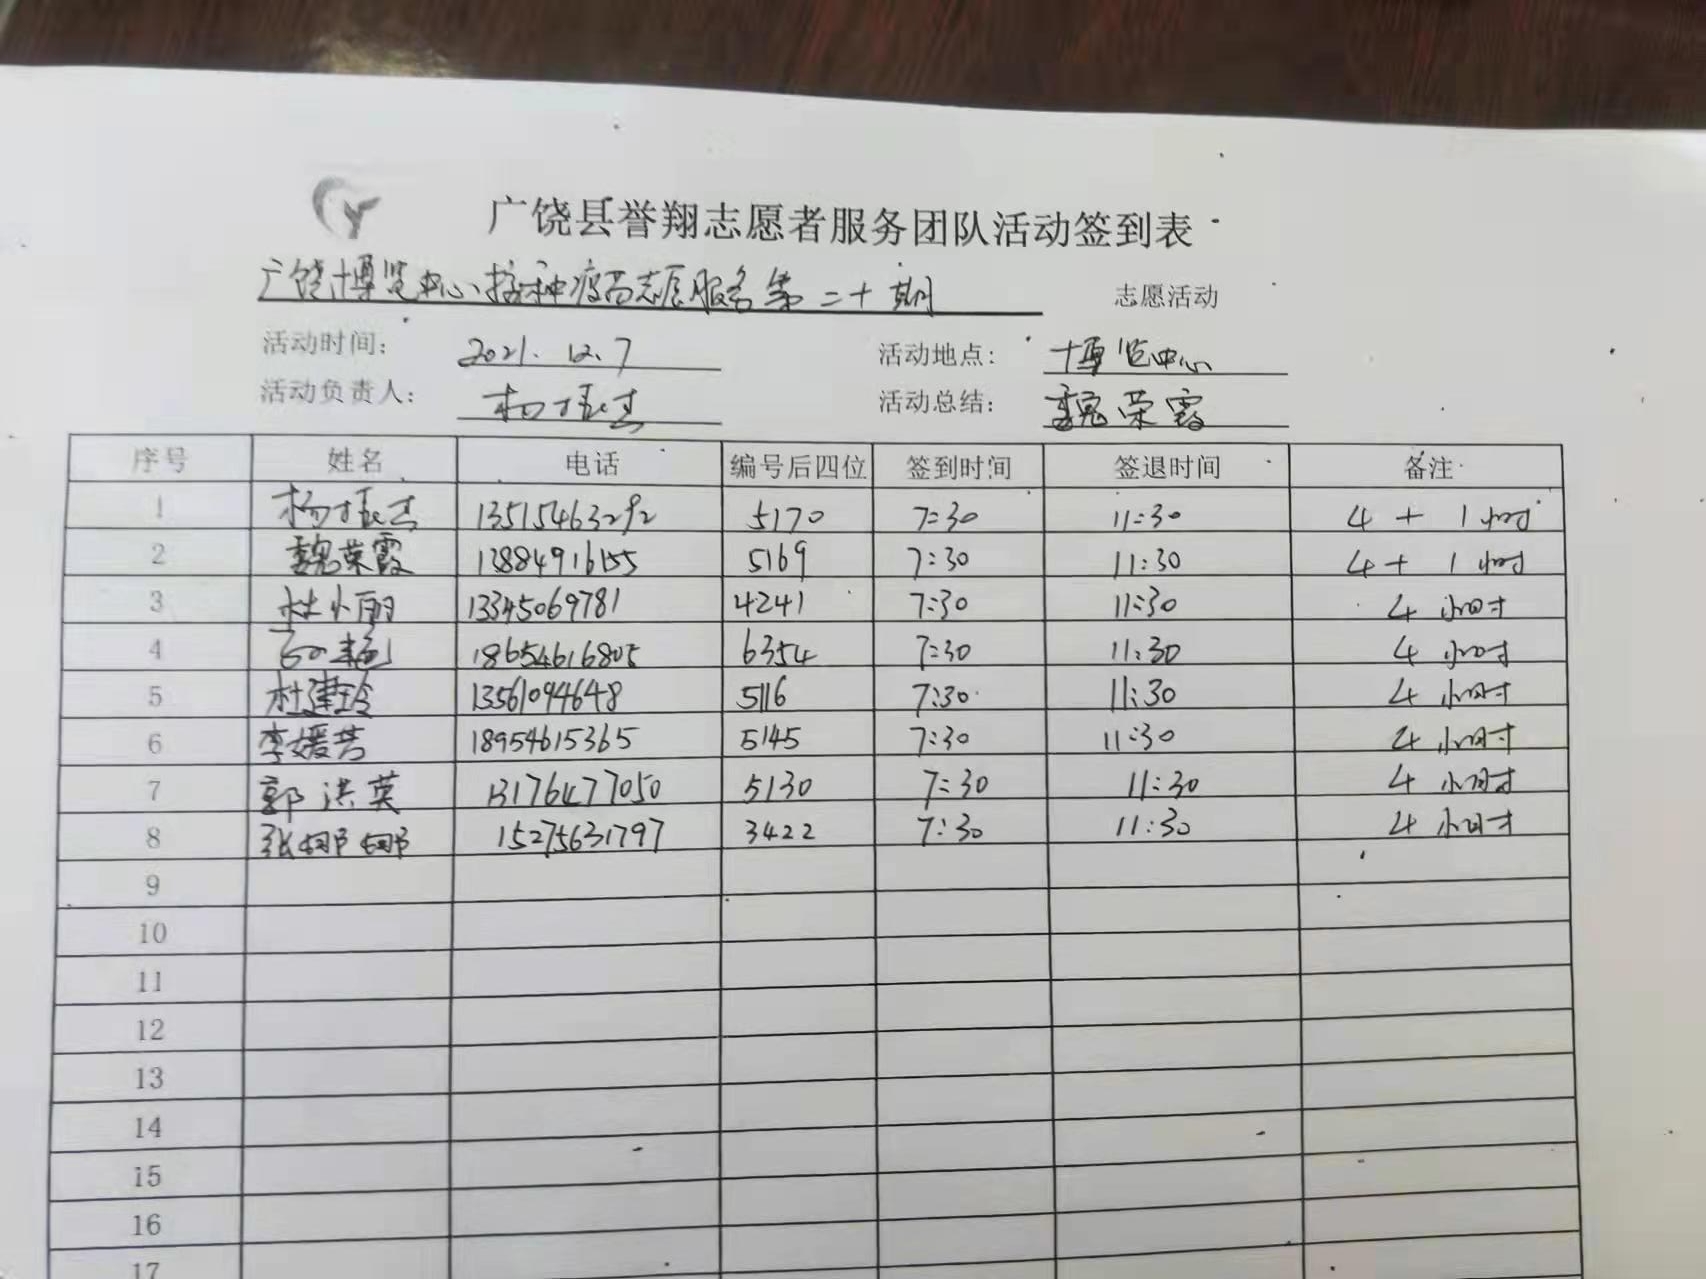 广饶县誉翔志愿者服务团队活动签到表
广饶博览中心接种疫苗志愿服务第二十期 志愿活动
活动时间: 2021.12.7 活动地点: 博览中心
活动负责人: 杨 活动总结: 魏荣霞
序号 姓名 电话 编号后四位 签到时间 签退时间 备注
1 杨 13515463292 5170 7:30 11:30 4 + 1小时
2 魏荣霞 13884916155 5169 7:30 11:30 4 + 1小时
3 杜小丽 13345069781 4241 7:30 11:30 4小时
4 艳 18654616805 6354 7:30 11:30 4小时
5 杜建玲 13561094648 5116 7:30 11:30 4小时
6 李媛芳 18954615365 5145 7:30 11:30 4小时
7 郭洪英 13176477050 5130 7:30 11:30 4小时
8 张娜娜 15275631797 3422 7:30 11:30 4小时
9
10
11
12
13
14
15
16
17